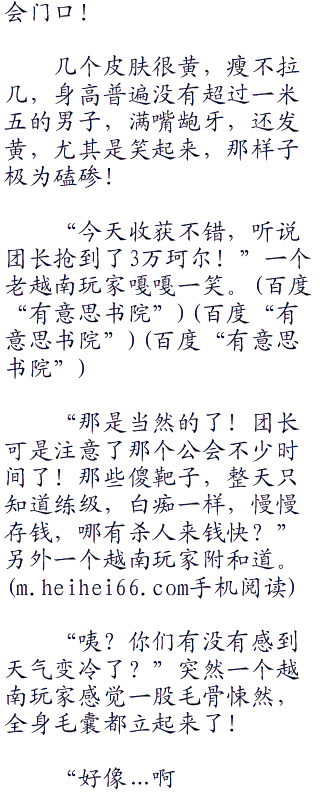 会门口！
几个皮肤很黄，瘦不拉
几，身高普遍没有超过一米
五的男子，满嘴龅牙，还发
黄，尤其是笑起来，那样子
极为磕碜！
“今天收获不错，听说
团长抢到了3万珂尔！”一个
老越南玩家嘎嘎一笑。(百度
“有意思书院”)(百度“有
意思书院”)(百度“有意思
书院”)
“那是当然的了！团长
可是注意了那个公会不少时
间了！那些傻靶子，整天只
知道练级，白痴一样，慢慢
存钱，哪有杀人来钱快？”
另外一个越南玩家附和道。
(m.heihei66.com手机阅读)
“咦？你们有没有感到
天气变冷了？”突然一个越
南玩家感觉一股毛骨悚然，
全身毛囊都立起来了！
“好像…啊